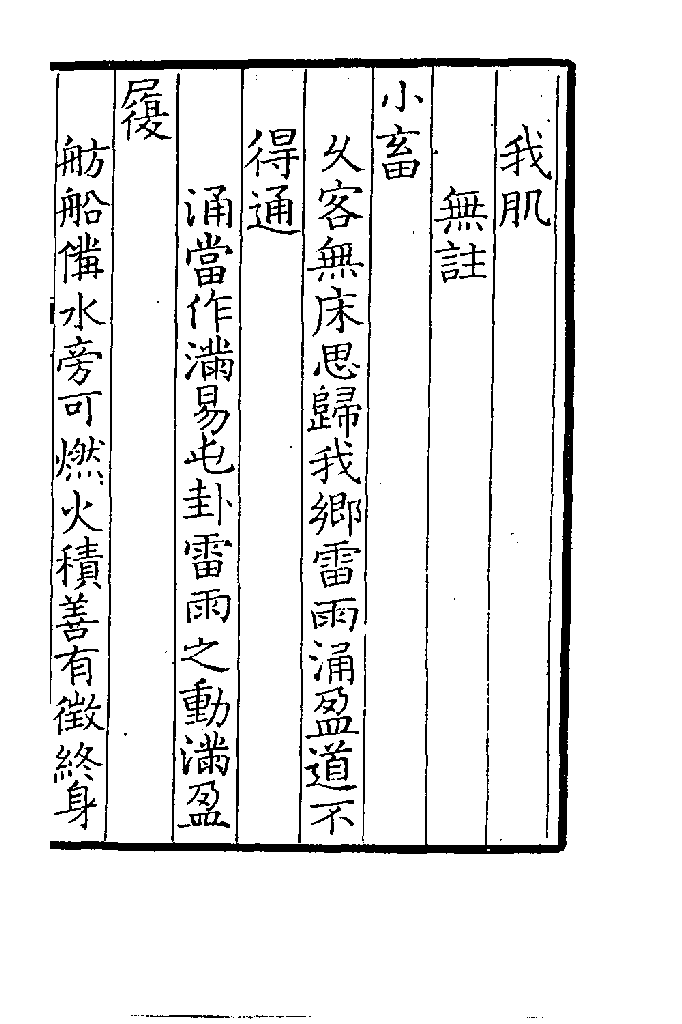 我肌
無註
小畜
久客無床思歸我鄉雷雨涌盈道不
得通
涌當作滿易屯卦雷雨之動滿盈
履
舫船備水旁可燃火積善有徵終身